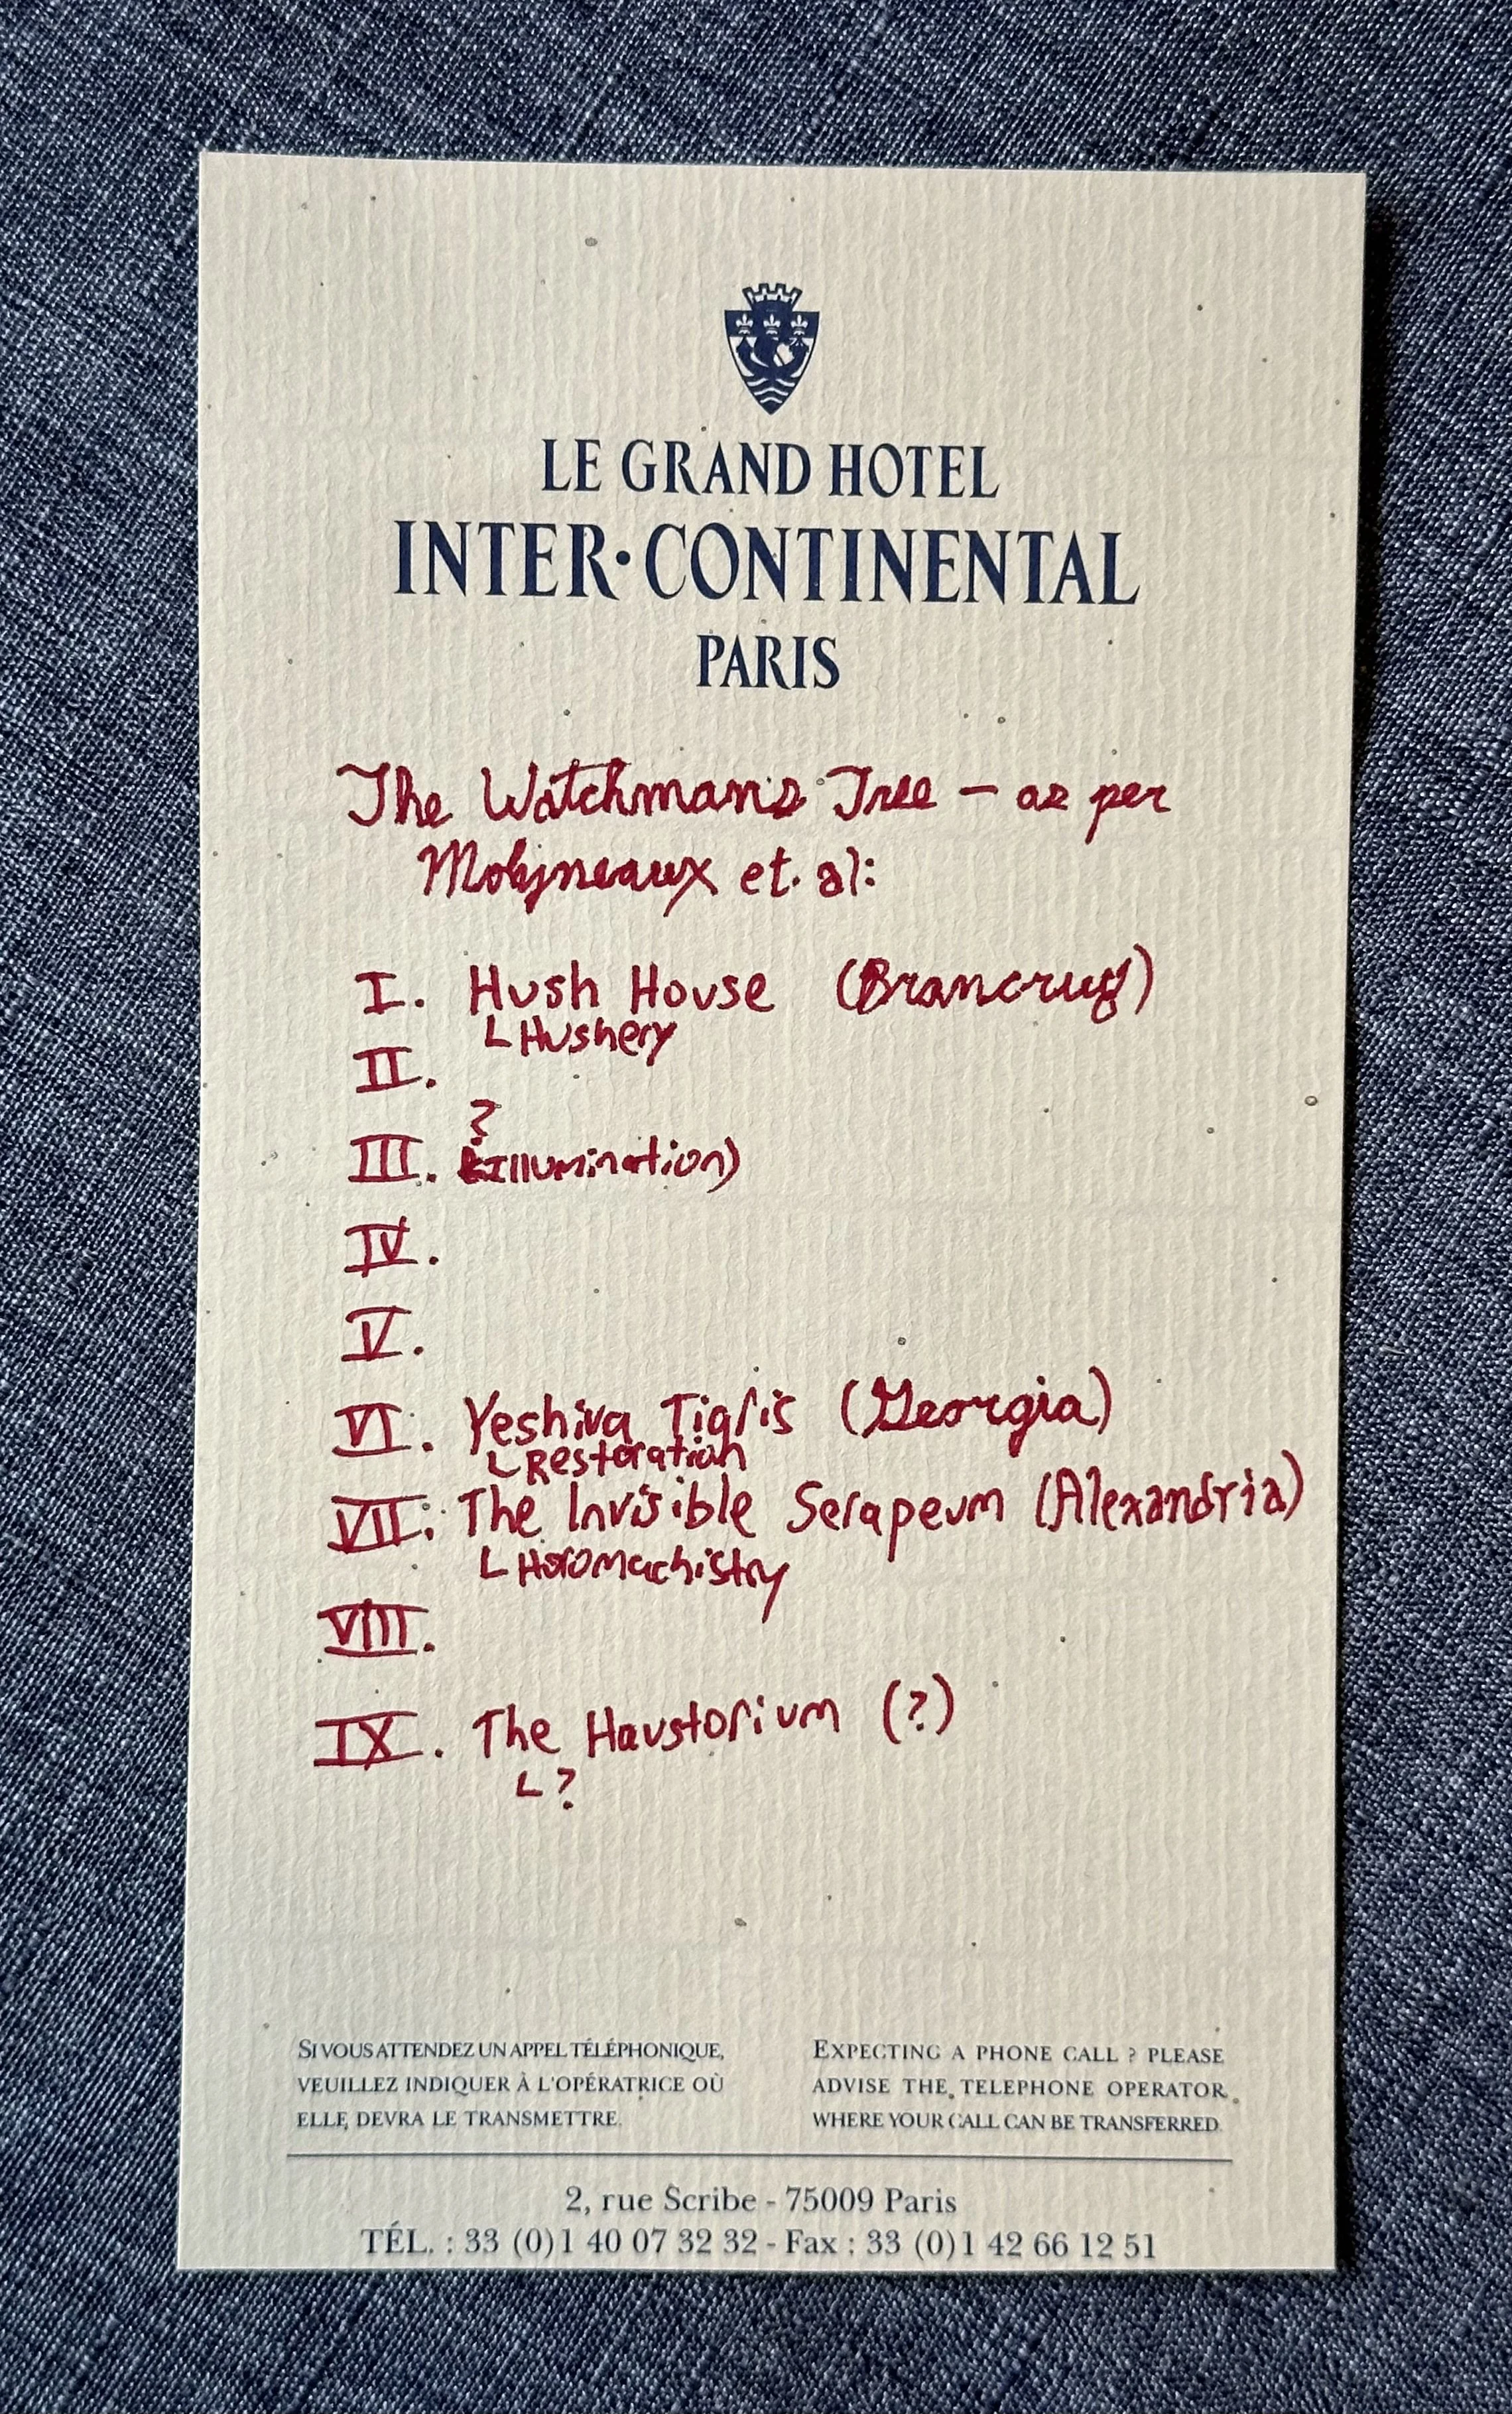 LE GRAND HOTEL
INTER·CONTINENTAL
PARIS
The Watchman's Tree – as per
Molyneaux et. al:
I. Hush House (Brancrug)
Hushery
II.
?
III. (Illumination)
IV.
V.
VI. Yeshiva Tigris (Georgia)
Restoration
VII. The Invisible Serapeum (Alexandria)
Horomachistry
VIII.
IX. The Haustorium (?)
?
SI VOUS ATTENDEZ UN APPEL TÉLÉPHONIQUE,
VEUILLEZ INDIQUER À L'OPÉRATRICE OÙ
ELLE DEVRA LE TRANSMETTRE.
EXPECTING A PHONE CALL ? PLEASE
ADVISE THE TELEPHONE OPERATOR
WHERE YOUR CALL CAN BE TRANSFERRED.
2, rue Scribe - 75009 Paris
TÉL. : 33 (0)1 40 07 32 32 - Fax : 33 (0)1 42 66 12 51